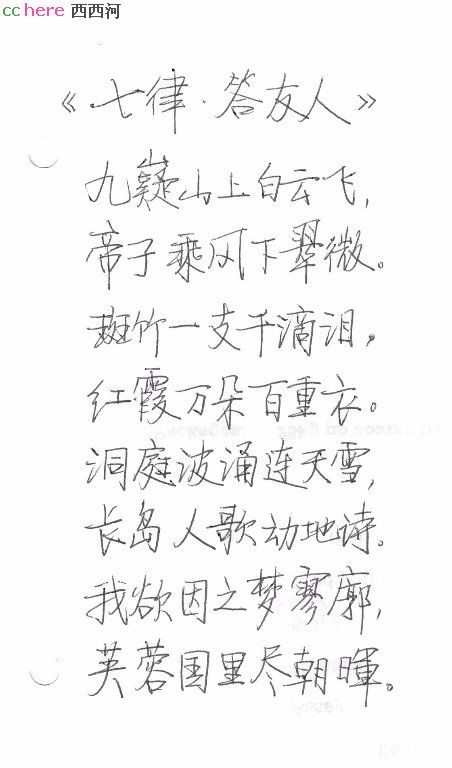 cchere 西西河
《七律·答友人》
九嶷山上白云飞，
帝子乘风下翠微。
斑竹一支千滴泪，
红霞万朵百重衣。
洞庭波涌连天雪，
长岛人歌动地诗。
我欲因之梦寥廓，
芙蓉国里尽朝暉。